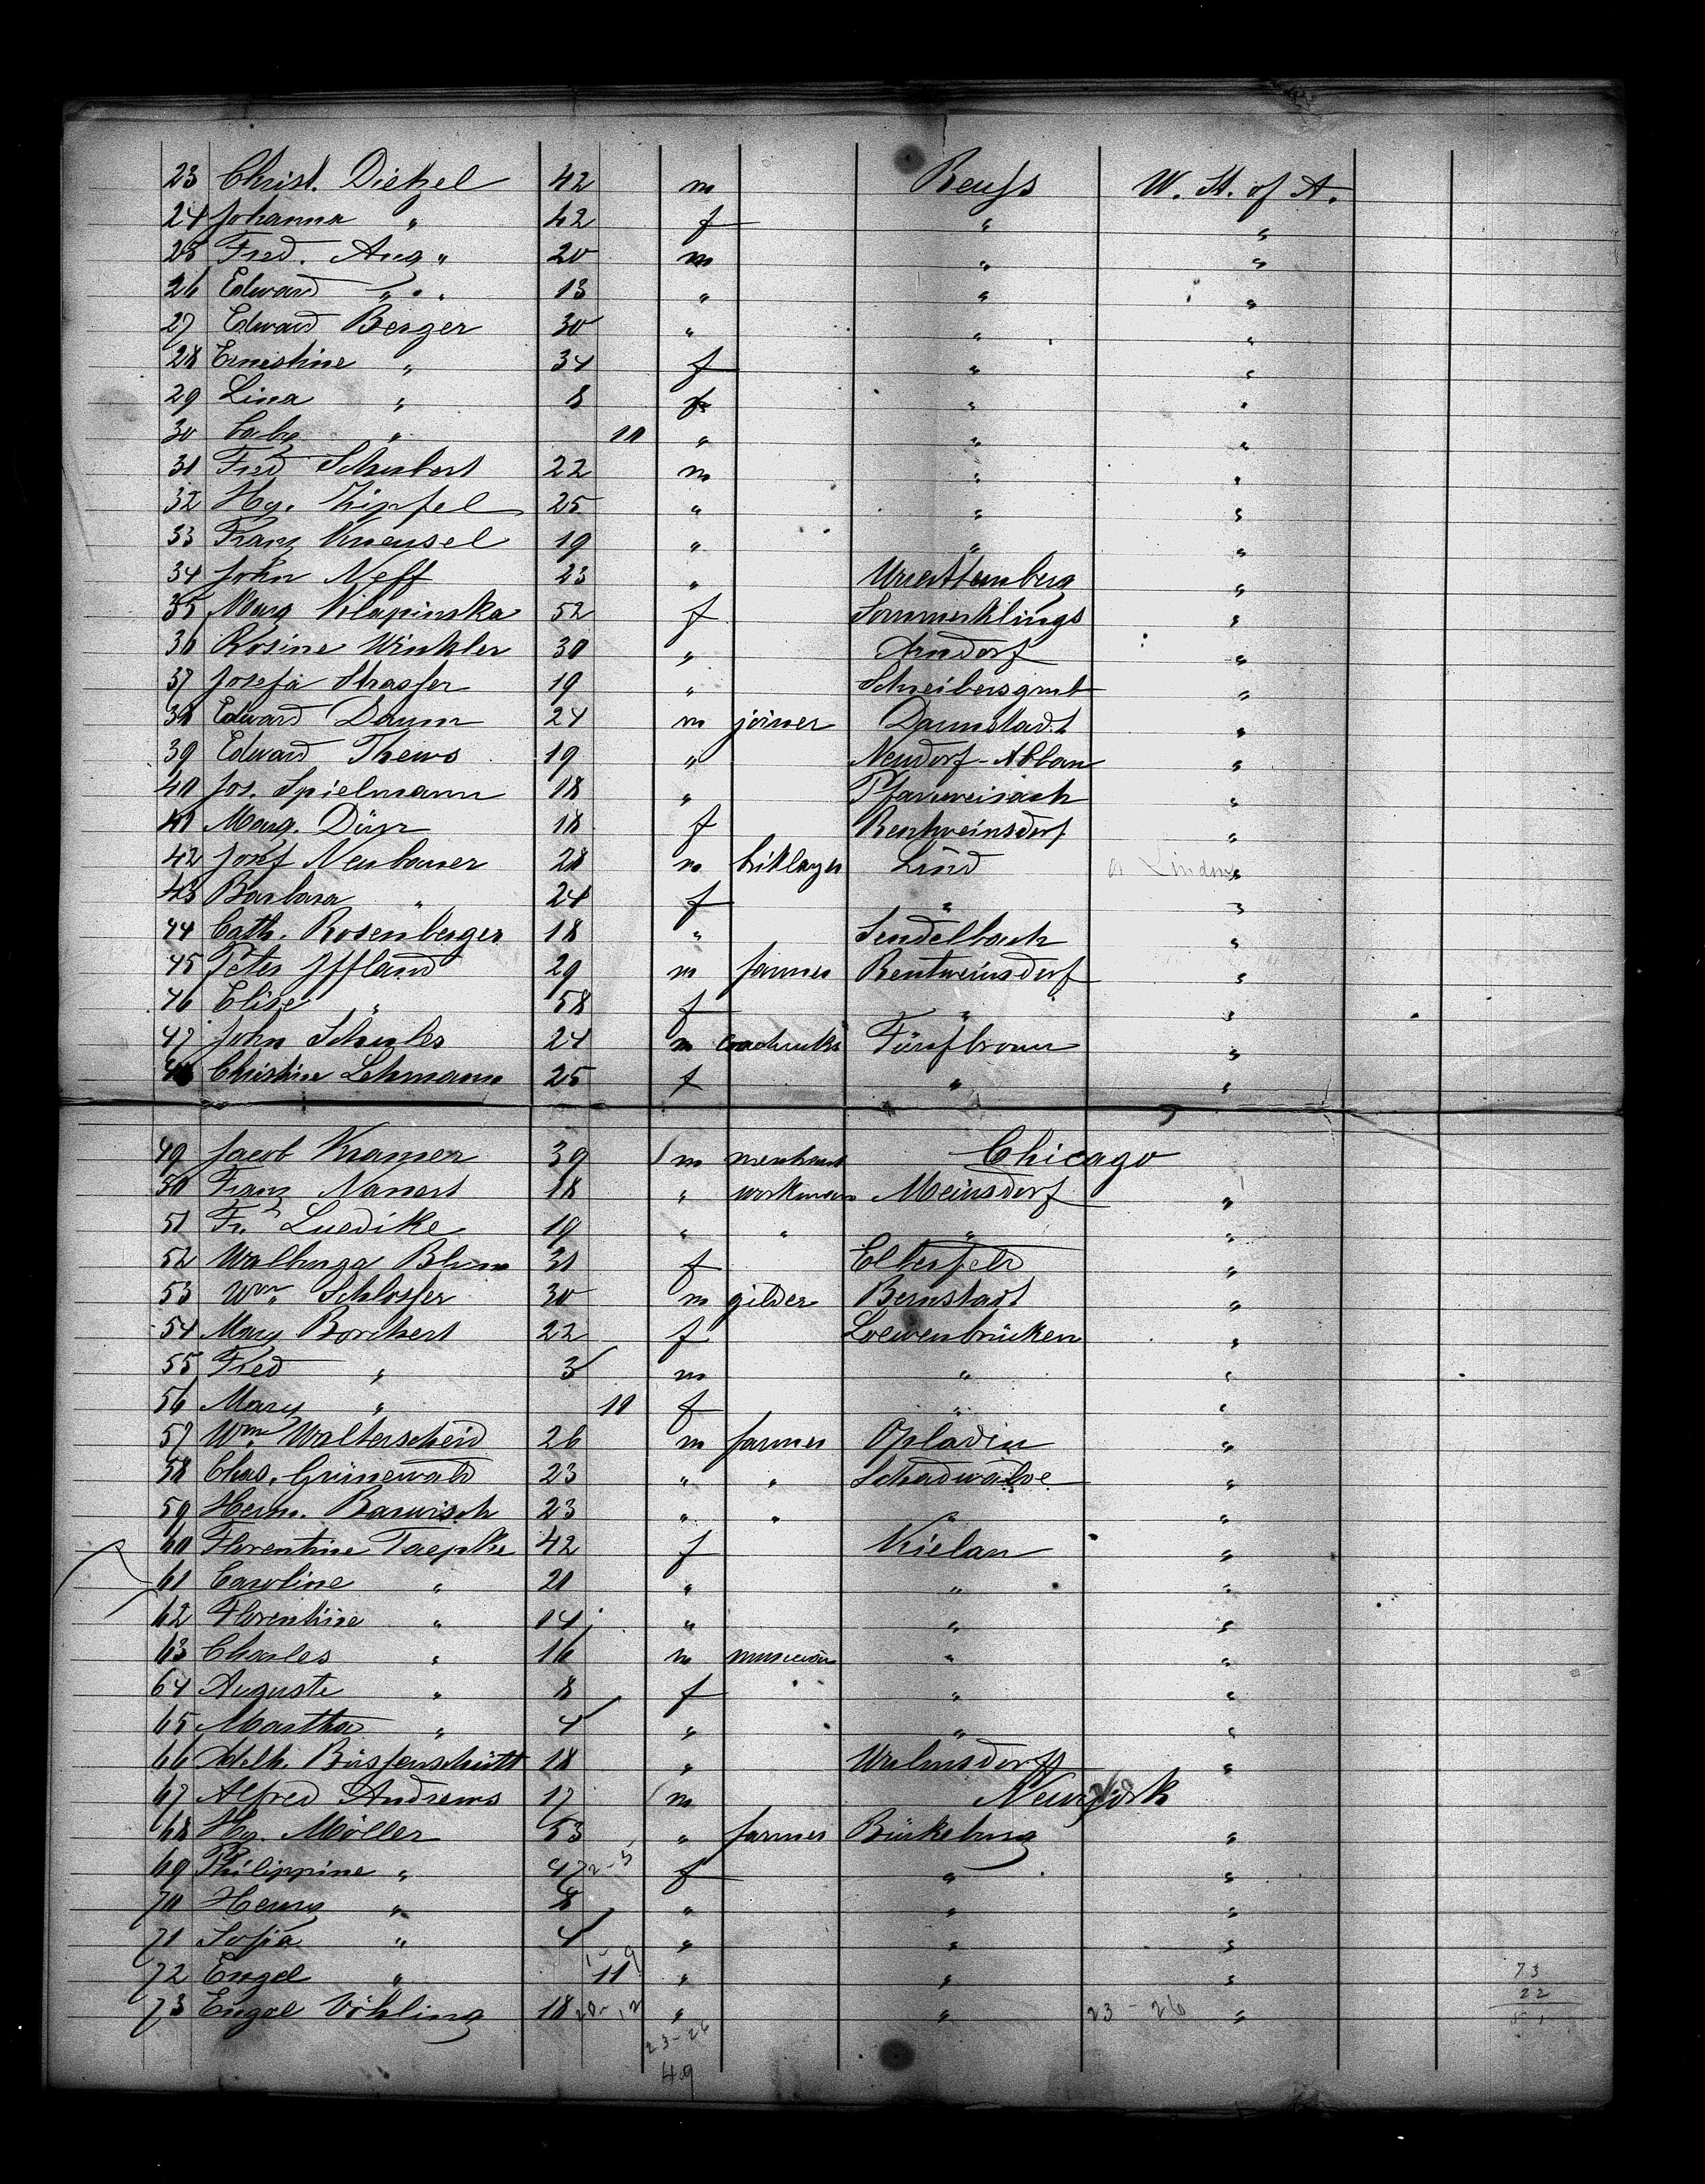 23 Christ. Dietzel 42 m Reuss U. St. of A.
24 Johanna " 42 f " "
25 Fred. Aug " 20 m " "
26 Edward " . . 13 " " "
27 Edward Berger 30 " " "
28 Ernestine " 34 f " "
29 Lina " 8 f " "
30 baby " 10 " " "
31 Fred Schubert 22 m " "
32 Hy. Zipfel 25 " " "
33 Franz Kneusel 19 " " "
34 John Neff 23 " Wuerttemberg "
35 Marg Klapinska 52 f Sommerklings "
36 Rosine Winkler 30 " Arndorf "
37 Josefa Strasser 19 " Schreibersgrub "
38 Edward Daum 24 m joiner Darmstadt "
39 Edward Thews 19 " Neudorf-Abbau "
40 Jos. Spielmann 18 " Pfarrweisach "
41 Marg. Dürr 18 f Rentweinsdorf "
42 Josef Neubauer 28 m briklayer Lind "
43 Barbara " 24 f " "
44 Cath. Rosenberger 18 " Sendelbach "
45 Peter Iffland 29 m farmer Rentweinsdorf "
46 Elise " 58 f " "
47 John Schules 24 m Fürfbronn "
48 Christine Lehmann 25 f " "
49 Jacob Kramer 39 m merchant Chicago
50 Franz Nanert 18 " workman Meinsdorf "
51 Fr. Luedike 19 " " " "
52 Walburga Blum 31 f Elberfeld "
53 Wm. Schlosser 30 m gilder Bernstadt "
54 Mary Borchert 22 f Loewenbrücken "
55 Fred " 3 m " "
56 Mary " 10 f " "
57 Wm. Walterscheid 26 m farmer Opladin "
58 Chas. Grünewald 23 " " Schadwalde "
59 Herm. Barwisch 23 " " " "
60 Florentine Taepke 42 f Kielau "
61 Caroline " 21 " " "
62 Florentine " 14 " " "
63 Charles " 16 m musician " "
64 Auguste " 8 f " "
65 Martha " 4 " " "
66 Adelh. Büssenschütt 18 " Wulmsdorf "
67 Alfred Andrews 17 m New york
68 Hy. Möller 53 " farmer Bückeburg "
69 Philippine " 47 f " "
70 Henry " 8 " " "
71 Sofia " 4 " " "
72 Engel " 11 " " "
73 Engel Vöhling 18 " " 23-26 "
73
22
51
23-26
49